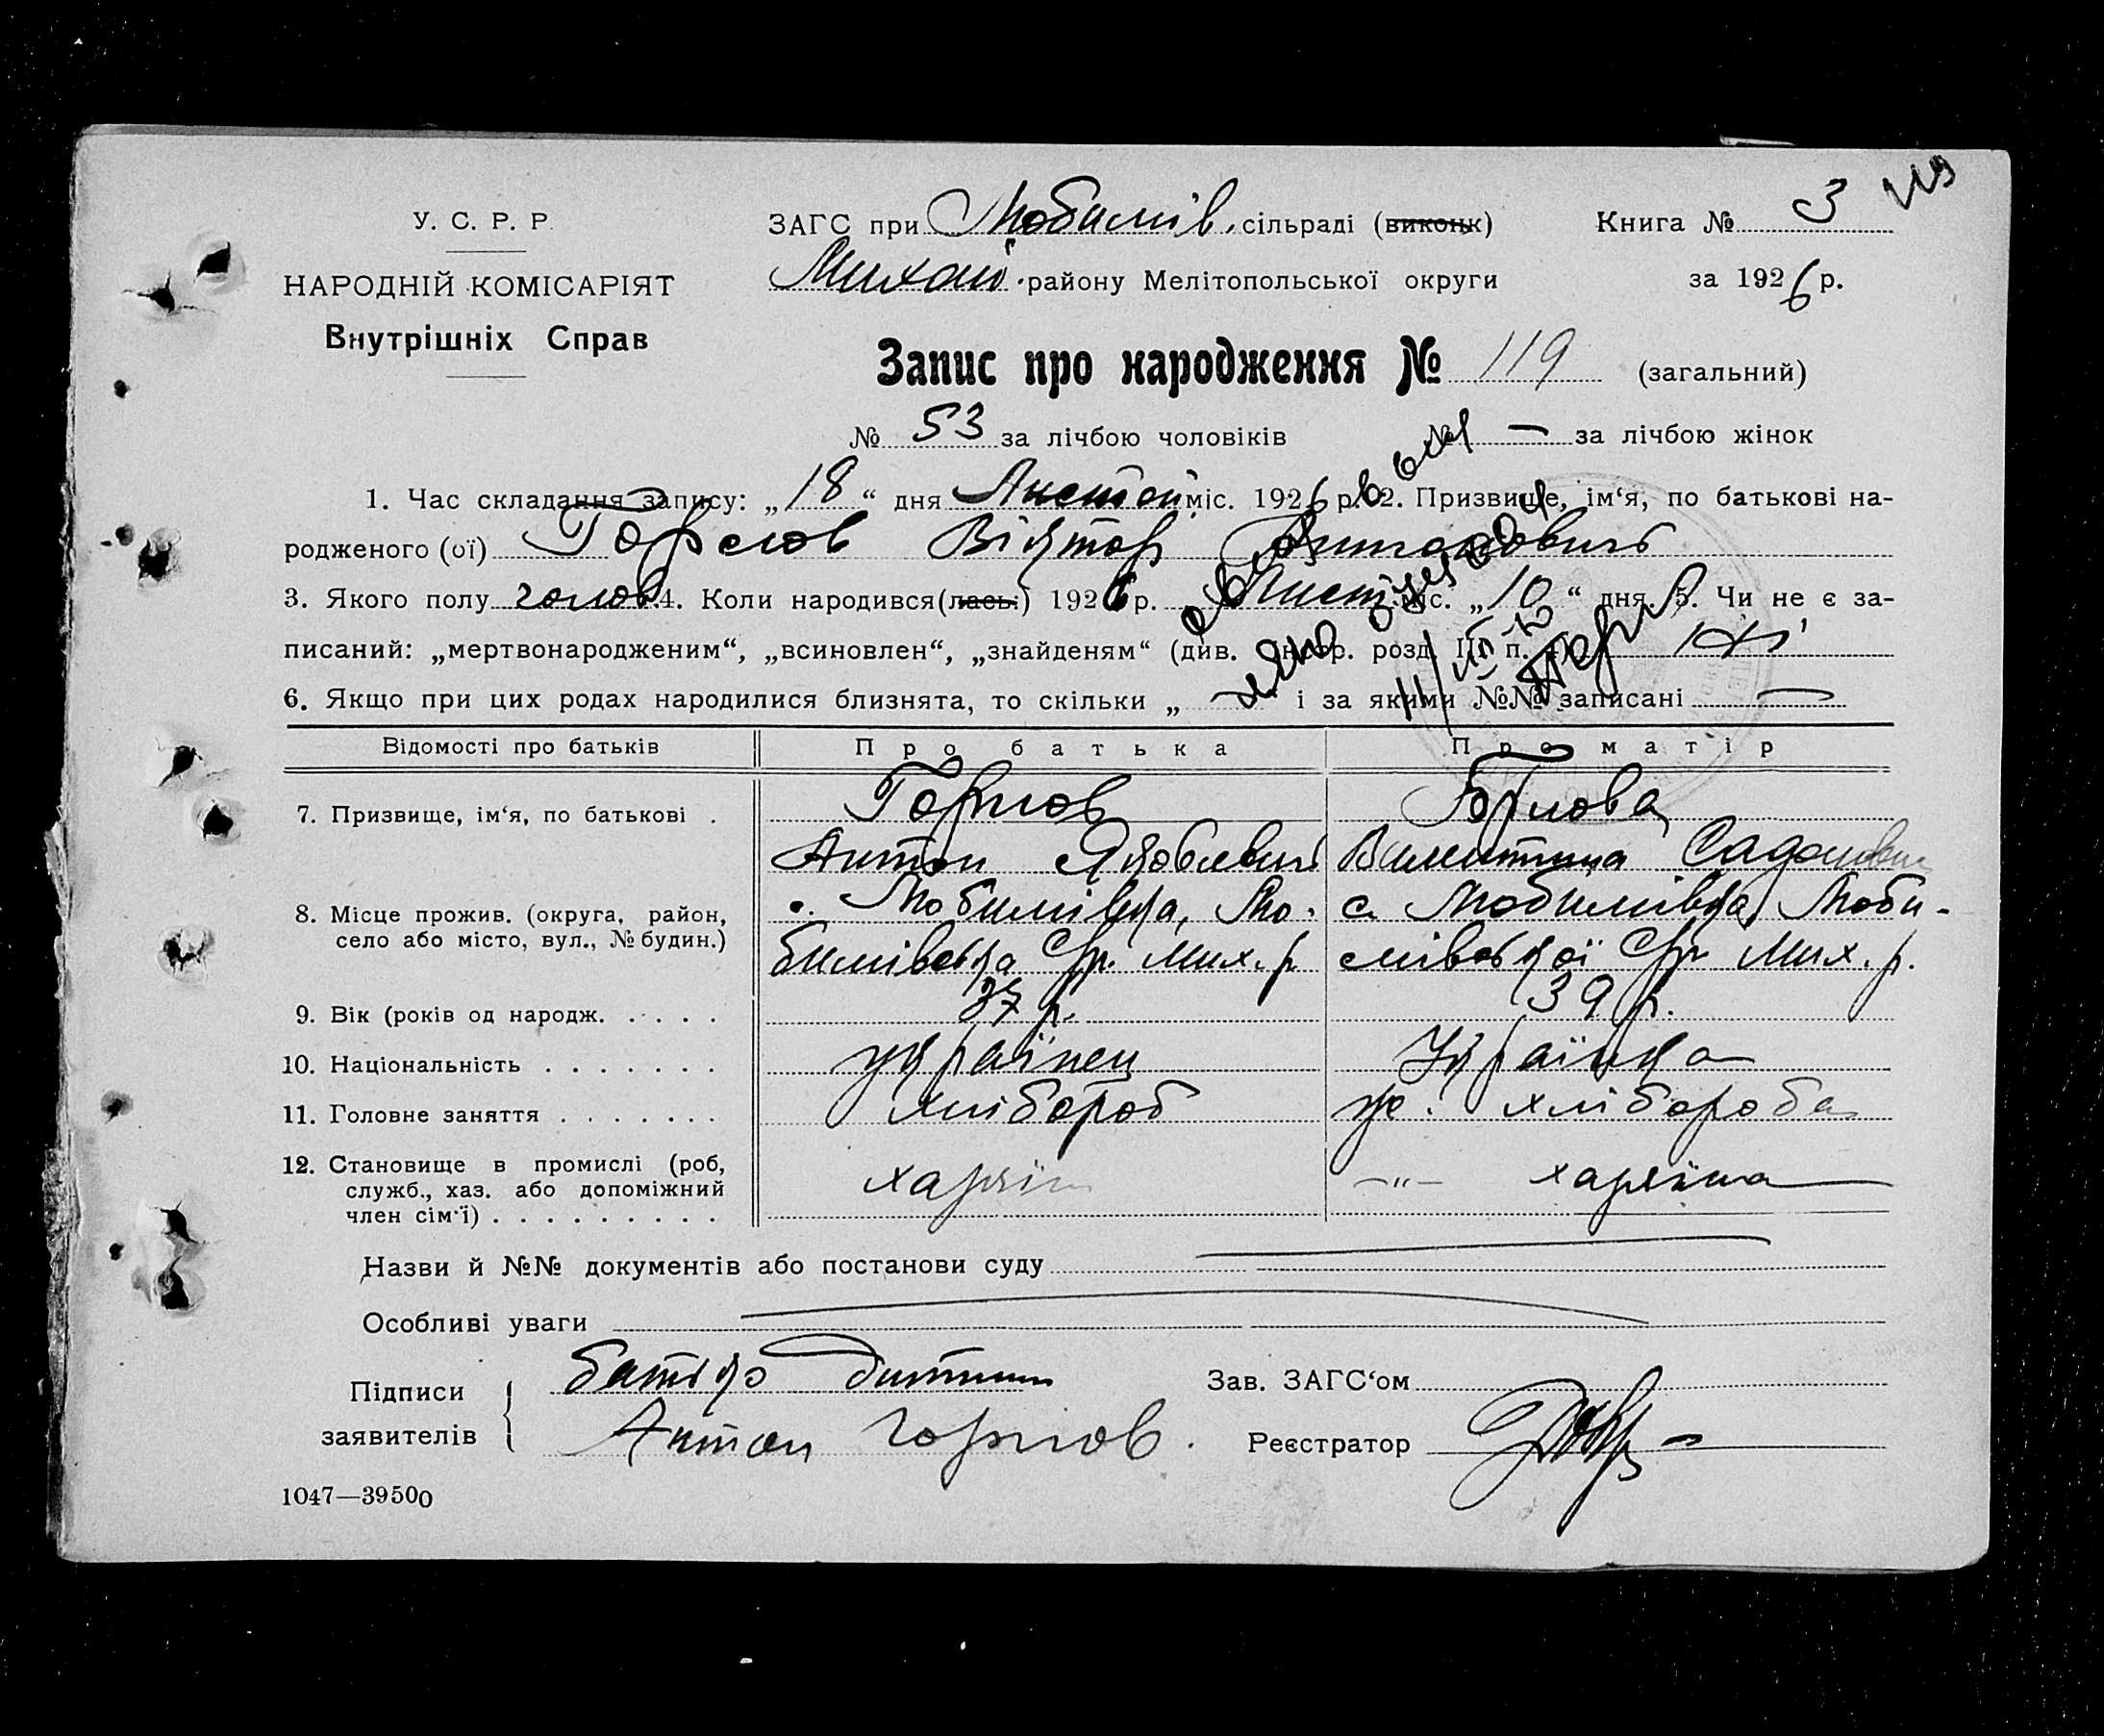 У. С. Р. Р.
НАРОДНІЙ КОМІСАРІЯТ
Внутрішніх Справ
ЗАГС при Любимів. сільраді (виконк)
Михай. району Мелітопольської округи
Книга № 3
за 1926 р.
Запис про народження № 119 (загальний)
№ 53 за лічбою чоловіків № — за лічбою жінок
1. Час складання запису: „18“ дня Листоп міс. 1926 р. 2. Призвище, ім‘я, по батькові на-
родженого (ої) Горлов Віктор Антонович
3. Якого полу чолов. 4. Коли народився(лась) 1926 р. Лист. міс. „10“ дня 5. Чи не є за-
писаний: „мертвонародженим“, „всиновлен“, „знайденям“ (див. розд. III п. ні
6. Якщо при цих родах народилися близнята, то скільки „ — і за якими №№ записані —
Відомості про батьків Про батька Про матір
7. Призвище, ім‘я, по батькові . Горлов Горлова
Антон Яковлевич Валентина
8. Місце прожив. (округа, район, с. Любимівка, Лю- с. Любимівка Люби-
село або місто, вул., № будин.) бимівська С/р. Мих. р. мівської С/р Мих. р.
9. Вік (років од народж. . . . . 37 р. 39 р.
10. Національність . . . . . . . українец Українка
11. Головне заняття . . . . . . . хлібороб хлібороба
12. Становище в промислі (роб,
служб., хаз. або допоміжний
член сім‘ї) . . . . . . . . .
Назви й №№ документів або постанови суду
Особливі уваги
Підписи
заявителів
батько дитини
Антон Горлов.
Зав. ЗАГС‘ом
Реєстратор
1047—39500